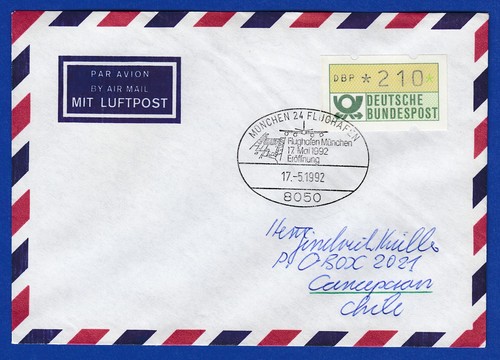 PAR AVION
BY AIR MAIL
MIT LUFTPOST
DBP *210*
DEUTSCHE
BUNDESPOST
MÜNCHEN 24 FLUGHAFEN
Flughafen München
17. Mai 1992
Eröffnung
17.-5.1992
8050
Herrn
P.O BOX 2021
Concepcion
Chile